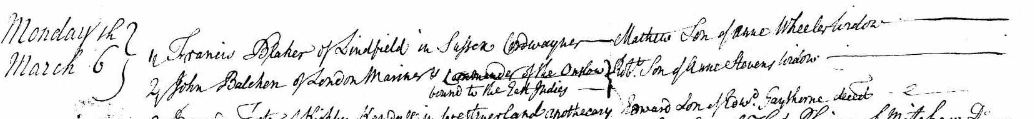 Monday th
March 6
1 Francis Blaker of Lindfield in Sussex Cordwayner — Mathew Son of Anne Wheeler widow
2 John Balchen of London Mariner & Commander of the Onslow bound to the East Indies — Robt. Son of Anne Stevens widow
of Kirkby Kendall in Westmerland apothecary Edward Son of Edwd. Gaythorne deced